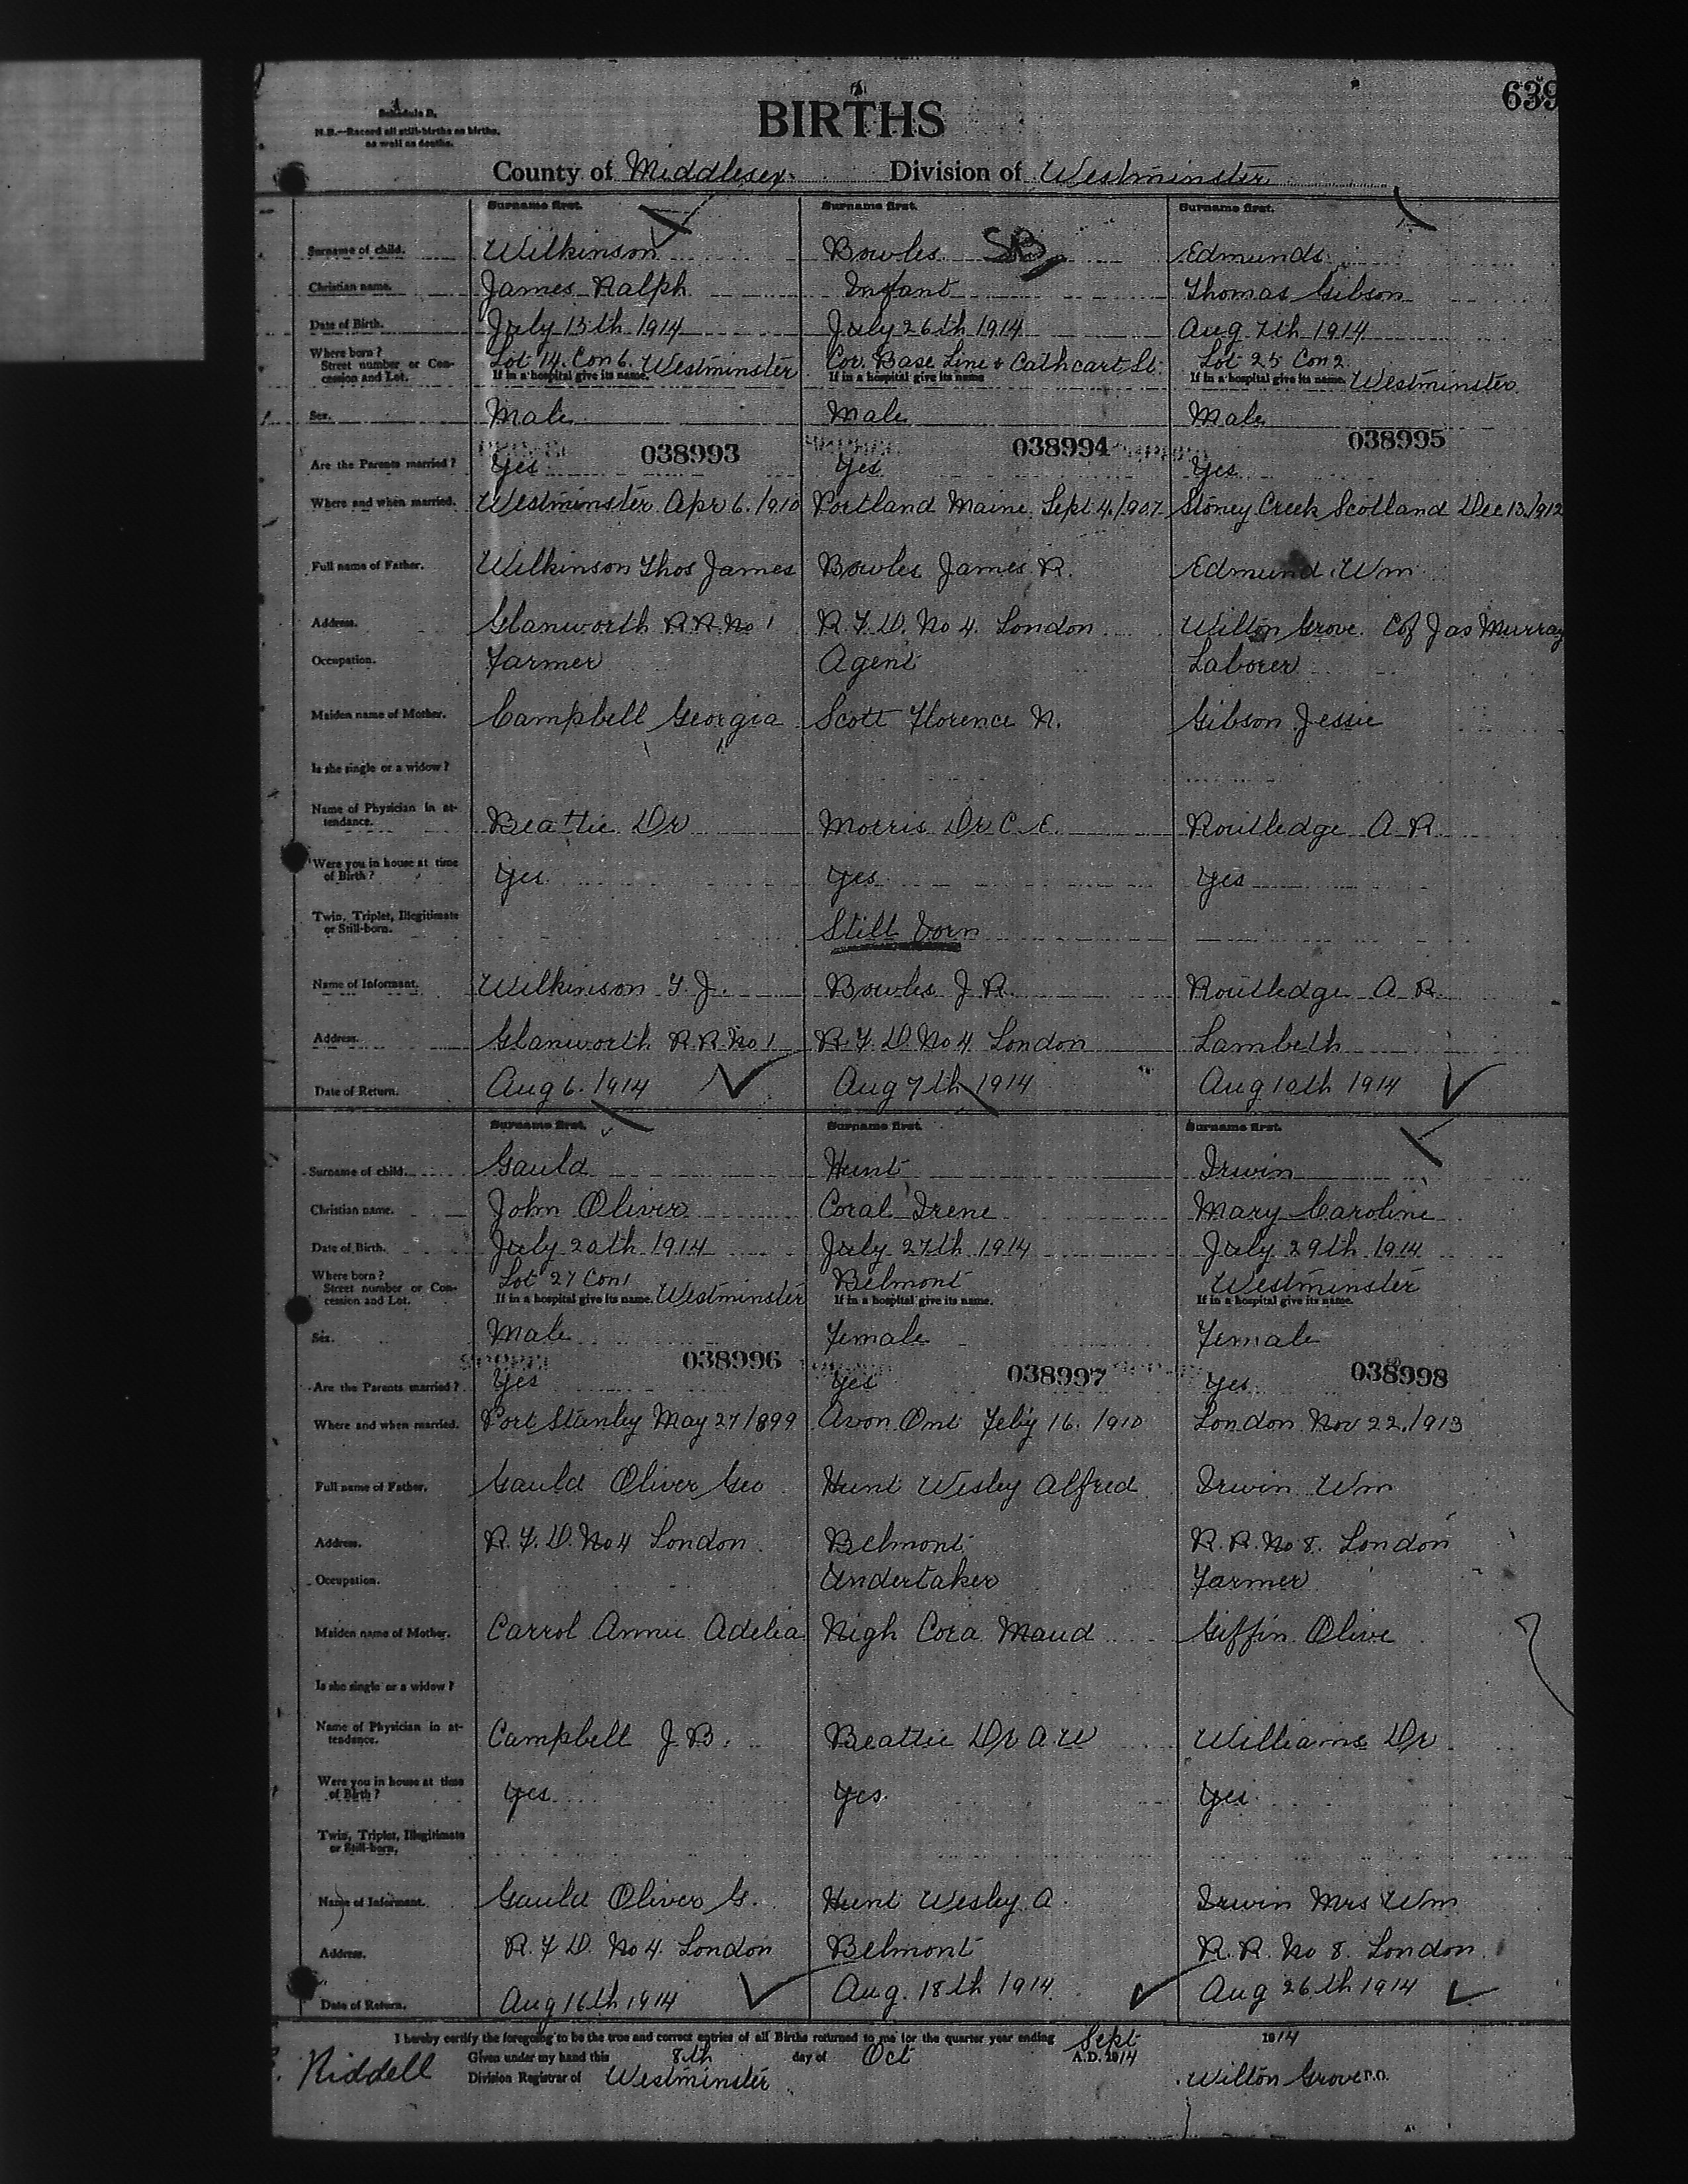 639
Schedule B.
N.B.—Record all still-births as births, as well as deaths.
BIRTHS
County of Middlesex Division of Westminster
Surname first. Surname first. Surname first.
Surname of child. Wilkinson Bowles SB Edmunds
Christian name. James Ralph Infant Thomas Gibson
Date of Birth. July 13th 1914 July 26th 1914 Aug 7th 1914
Where born? Lot 14. Con 6. Westminster Cor. Base Line & Cathcart St. Lot 25 Con 2
Street number or Concession and Lot. If in a hospital give its name. If in a hospital give its name If in a hospital give its name. Westminster
Sex. Male Male Male
038993 038994 038995
Are the Parents married? Yes Yes Yes
Where and when married. Westminster Apr 6. 1910 Portland Maine Sept 4, 1907 Stoney Creek Scotland Dec 13, 1912
Full name of Father. Wilkinson Thos James Bowles James R. Edmund Wm
Address. Glanworth R R No 1 R. F. D. No 4. London Wilton Grove. C of Jas Murray
Occupation. Farmer Agent Laborer
Maiden name of Mother. Campbell Georgia Scott Florence N. Gibson Jessie
Is she single or a widow?
Name of Physician in attendance. Beattie Dr Morris Dr C. E. Routledge A R
Were you in house at time of Birth? Yes Yes Yes
Twin, Triplet, Illegitimate or Still-born. Still born
Name of Informant. Wilkinson T. J. Bowles J R. Routledge A R
Address. Glanworth R R No 1 R. F. D. No 4 London Lambeth
Date of Return. Aug 6. 1914 Aug 7th 1914 Aug 10th 1914
Surname first. Surname first. Surname first.
Surname of child. Gauld Hunt Irwin
Christian name. John Oliver Coral Irene Mary Caroline
Date of Birth. July 20th 1914 July 27th 1914 July 29th 1914
Where born? Lot 27 Con 1 Belmont Westminster
Street number or Concession and Lot. If in a hospital give its name. Westminster If in a hospital give its name. If in a hospital give its name.
Sex. Male Female Female
038996 038997 038998
Are the Parents married? Yes Yes Yes
Where and when married. Port Stanley May 27 1899 Avon Ont Feb'y 16. 1910 London Nov 22. 1913
Full name of Father. Gauld Oliver Geo Hunt Wesley Alfred Irwin Wm
Address. R. F. D. No 4 London Belmont R. R. No 8. London
Occupation. Undertaker Farmer
Maiden name of Mother. Carrol Annie Adelia Nigh Cora Maud Giffin Olive
Is she single or a widow?
Name of Physician in attendance. Campbell J. B. Beattie Dr A. W Williams Dr
Were you in house at time of Birth? Yes Yes Yes
Twin, Triplet, Illegitimate or Still-born.
Name of Informant. Gauld Oliver G. Hunt Wesley A. Irwin Mrs Wm
Address. R. F D. No 4. London Belmont R. R. No 8. London
Date of Return. Aug 16th 1914 Aug. 18th 1914 Aug 26th 1914
I hereby certify the foregoing to be the true and correct entries of all Births returned to me for the quarter year ending Sept 1914
Given under my hand this 8th day of Oct A.D. 1914
Riddell Division Registrar of Westminster Wilton Grove P.O.